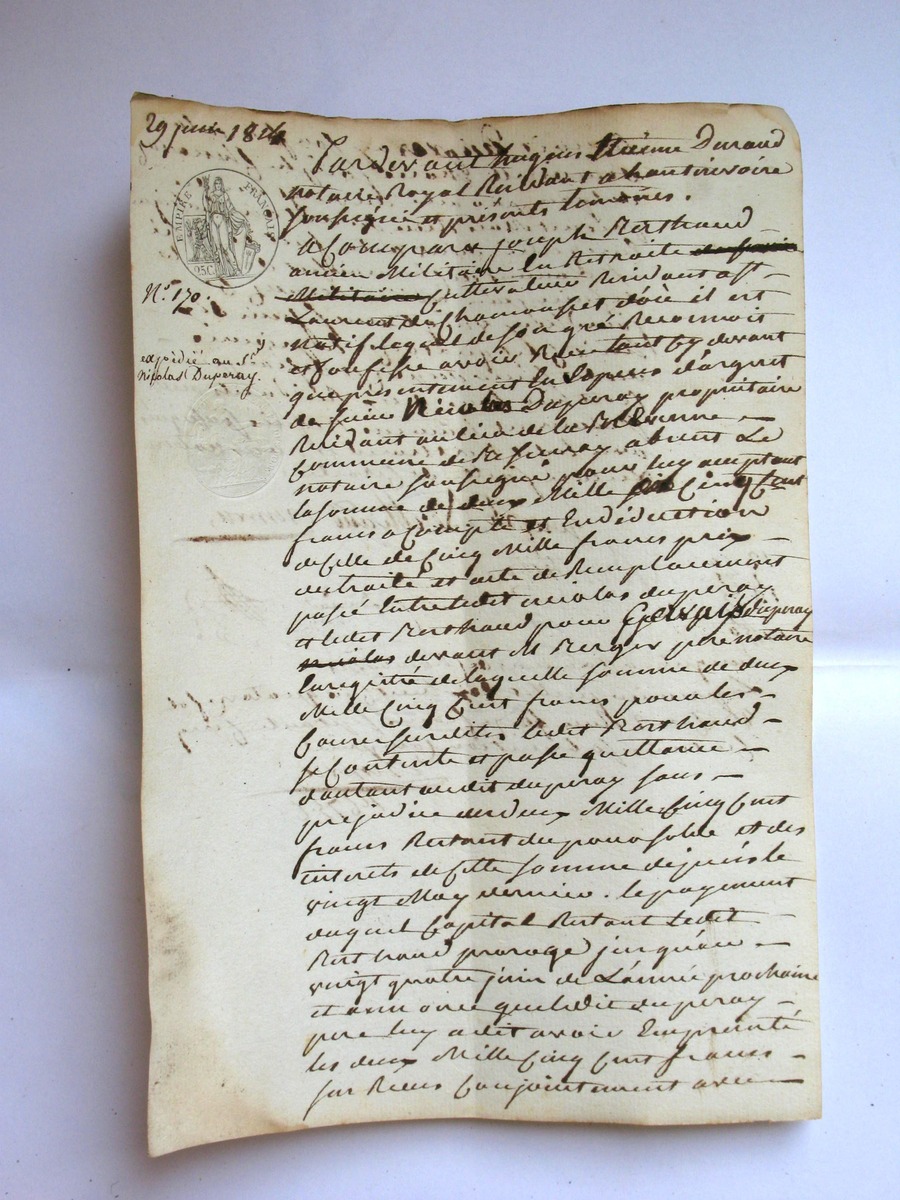 29 juin 1814
EMPIRE FRANÇAIS
25C
N.° 170.
expédié au S.r
Nicolas Duperay.
Pardevant hugues Etienne Durand
notaire Royal Residant a hauterivoire
soussigné et présents temoins.
a Comparu joseph Berthaud
ancien Militaire en Retraite
Militaire Cultivateur Residant a St
Laurent de Chamousset d'où il est
natif lequel de son gré Reconnoit
et Confesse avoir Reçu tant cy devant
que présentement en Especes d'argent
de sieur Nicolas Duperay propriétaire
Residant au lieu de la
Commune de absent Le
notaire soussigné pour luy acceptant
la somme de deux Mille Cinq Cent
francs a Compte et En déduction
de Celle de Cinq Mille francs prix
du traité et acte de Remplacement
passé Entre ledit nicolas duperay
et ledit Berthaud pour Gervais duperay
nicolas devant M Berger notaire
Enregistré de laquelle somme de deux
Mille Cinq Cent francs pour les
Causes susdites ledit Berthaud
se Contente et passe quittance
d'autant audit duperay sans
prejudice des deux Mille Cinq Cent
francs Restant du pour solde et des
interets de Celle somme depuis le
vingt May dernier. le payement
duquel Capital Restant Ledit
Berthaud proroge jusqu'au
vingt quatre juin de L'année prochaine
et que ledit duperay
pere luy a dit avoir Emprunté
les deux Mille Cinq Cent francs
sur Reçus Conjointement avec